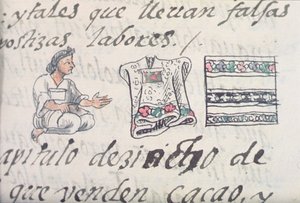 : y tales que lleuan falsas
postizas labores. /
apitulo dezinueho de
que venden cacao, y